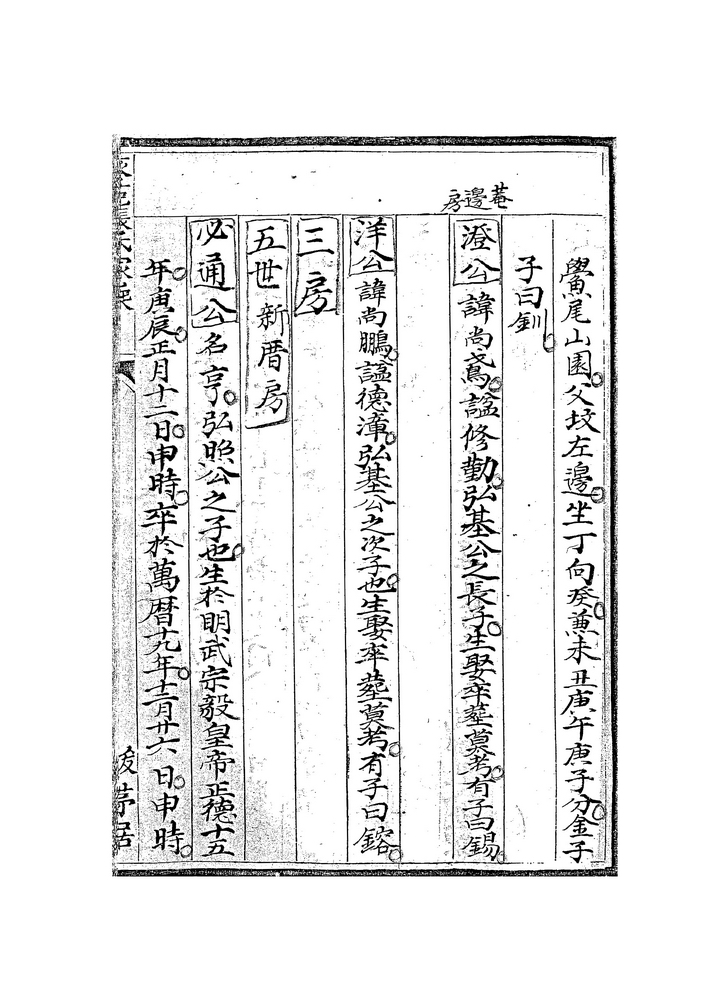 鱟尾山園父坟左邊坐丁向癸兼未丑庚午庚子分金子
子曰釧
菴邊房
澄公諱尚鳶諡修勤弘基公之長子生娶卒塟莫考有子曰錫
洋公諱尚鵬諡德漳弘基公之次子也生娶卒塟莫考有子曰鎔
三房
五世新厝房
必通公名亨弘照公之子也生於明武宗毅皇帝正德十五
年庚辰正月十二日申時卒於萬曆十九年十二月廿六日申時
張氏家乘